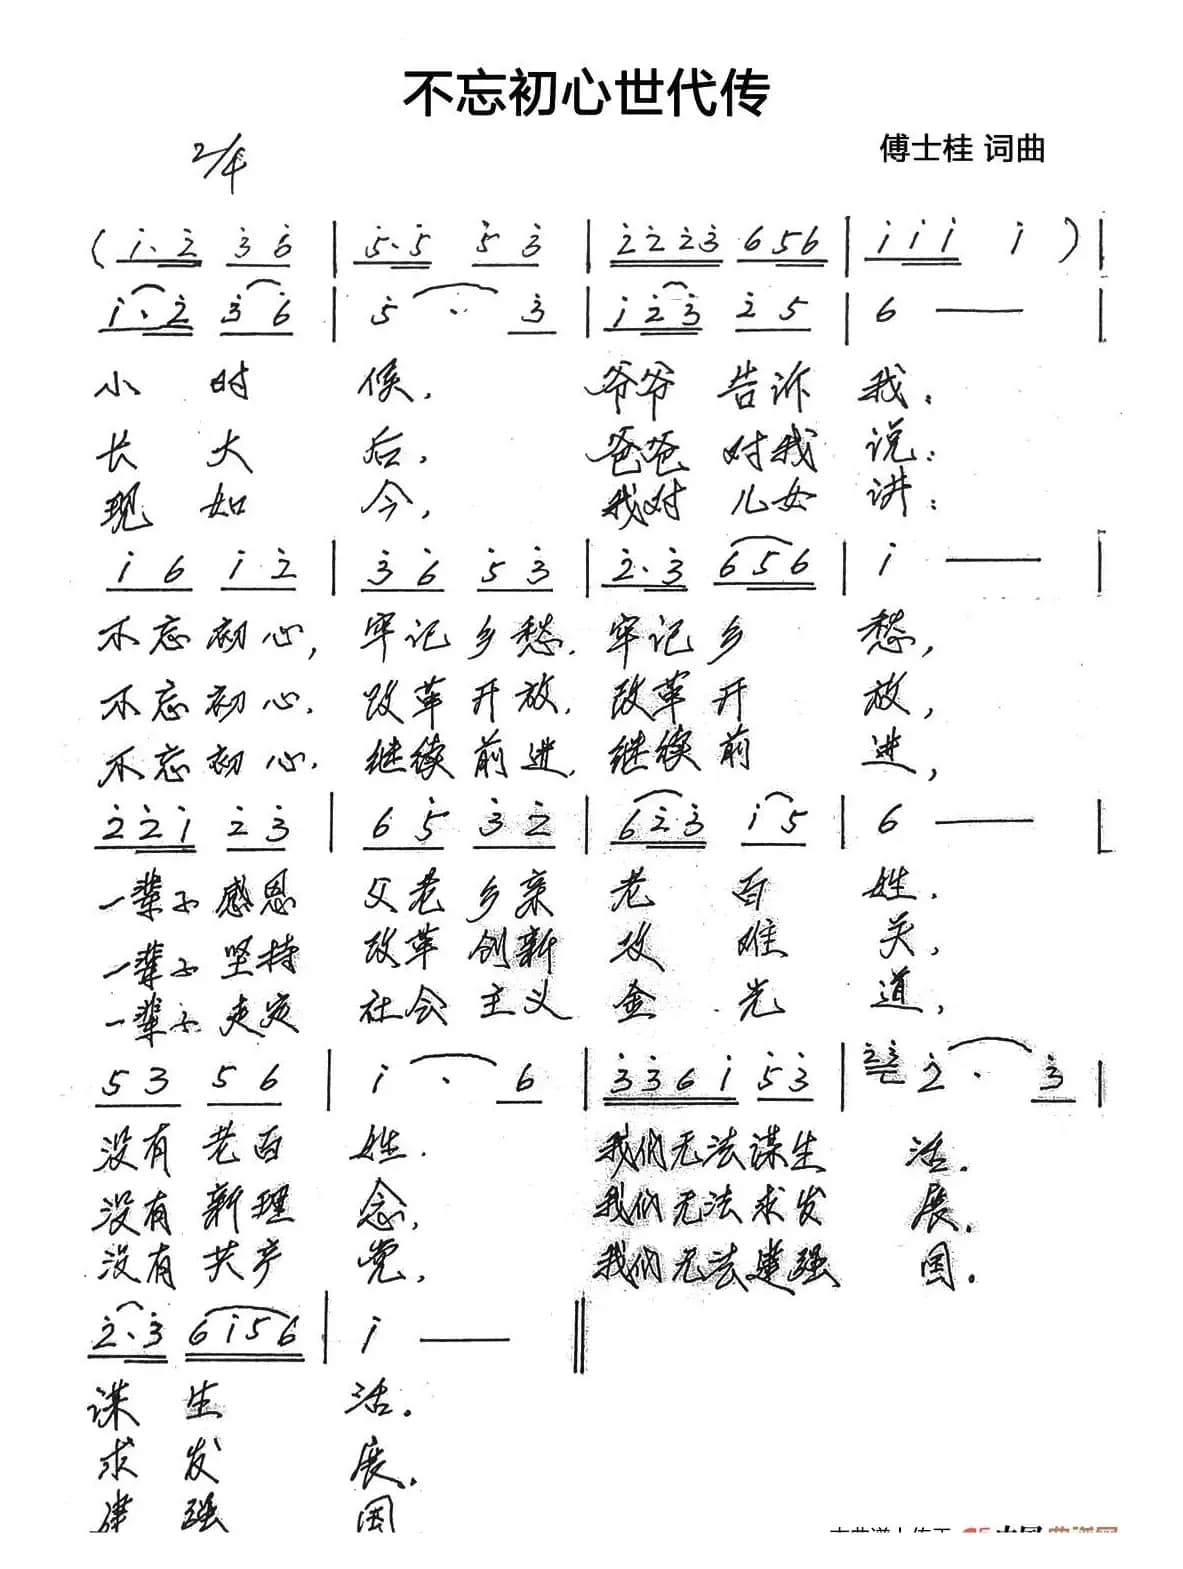 不忘初心世代传
2/4
傅士桂 词曲
( i̇·2̇ 3̇ 6̇ | 5̇·5̇ 5̇ 3̇ | 2̇2̇2̇3̇ 656 | i̇i̇i̇ i̇ ) |
i̇·2̇ 3̇6̇ | 5̇ · 3̇ | i̇2̇3̇ 2̇5 | 6 — |
小 时 候, 爷爷 告诉 我:
长 大 后, 爸爸 对我 说:
现 如 今, 我对 儿女 讲:
i̇6 i̇2̇ | 3̇6̇ 5̇3̇ | 2̇·3̇ 656 | i̇ — |
不忘初心, 牢记乡愁, 牢记乡 愁,
不忘初心, 改革开放, 改革开 放,
不忘初心, 继续前进, 继续前 进,
2̇2̇i̇ 2̇3̇ | 65̇ 3̇2̇ | 62̇3̇ i̇5 | 6 — |
一辈子感恩 父老乡亲 老 百 姓.
一辈子坚持 改革创新 攻 难 关,
一辈子走定 社会主义 金 光 道,
53 56 | i̇ · 6 | 3̇3̇6i̇ 5̇3̇ | 2̇3̇ 2̇ · 3̇ |
没有老百 姓. 我们无法谋生 活.
没有新理 念, 我们无法求发 展.
没有共产 党, 我们无法建强 国.
2̇·3̇ 6i̇56 | i̇ — ‖
谋 生 活.
求 发 展.
建 强 国